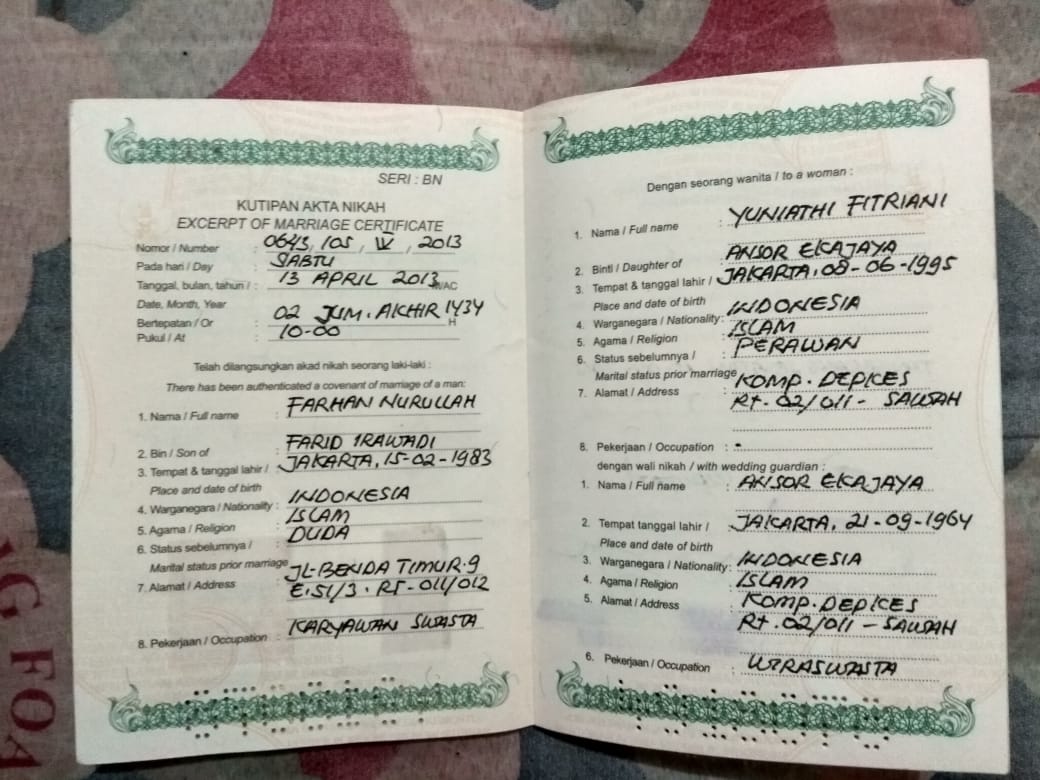 SERI : BN
KUTIPAN AKTA NIKAH
EXCERPT OF MARRIAGE CERTIFICATE
Nomor / Number : 0643, 105, IV, 2013
Pada hari / Day : SABTU
Tanggal, bulan, tahun / : 13 APRIL 2013 M/AC
Date, Month, Year
Bertepatan / Or : 02 JUM. AKHIR 1434 H
Pukul / At : 10-00
Telah dilangsungkan akad nikah seorang laki-laki :
There has been authenticated a covenant of marriage of a man:
1. Nama / Full name : FARHAN NURULLAH
2. Bin / Son of : FARID IRAWADI
3. Tempat & tanggal lahir / : JAKARTA, 15-02-1983
Place and date of birth
4. Warganegara / Nationality : INDONESIA
5. Agama / Religion : ISLAM
6. Status sebelumnya / : DUDA
Marital status prior marriage
7. Alamat / Address : JL-BENDA TIMUR.9
E.51/3. RT-011/012
8. Pekerjaan / Occupation : KARYAWAN SWASTA
Dengan seorang wanita / to a woman :
1. Nama / Full name : YUNIATHI FITRIANI
2. Binti / Daughter of : ANSOR EKAJAYA
3. Tempat & tanggal lahir / : JAKARTA, 08-06-1995
Place and date of birth
4. Warganegara / Nationality: INDONESIA
5. Agama / Religion : ISLAM
6. Status sebelumnya / : PERAWAN
Marital status prior marriage
7. Alamat / Address : KOMP. DEPKES
Rt. 02/011 - SAWAH
8. Pekerjaan / Occupation : -
dengan wali nikah / with wedding guardian :
1. Nama / Full name : ANSOR EKAJAYA
2. Tempat tanggal lahir / : JAKARTA, 21-09-1964
Place and date of birth
3. Warganegara / Nationality: INDONESIA
4. Agama / Religion : ISLAM
5. Alamat / Address : KOMP. DEPKES
Rt. 02/011 - SAWAH
6. Pekerjaan / Occupation : WIRASWASTA